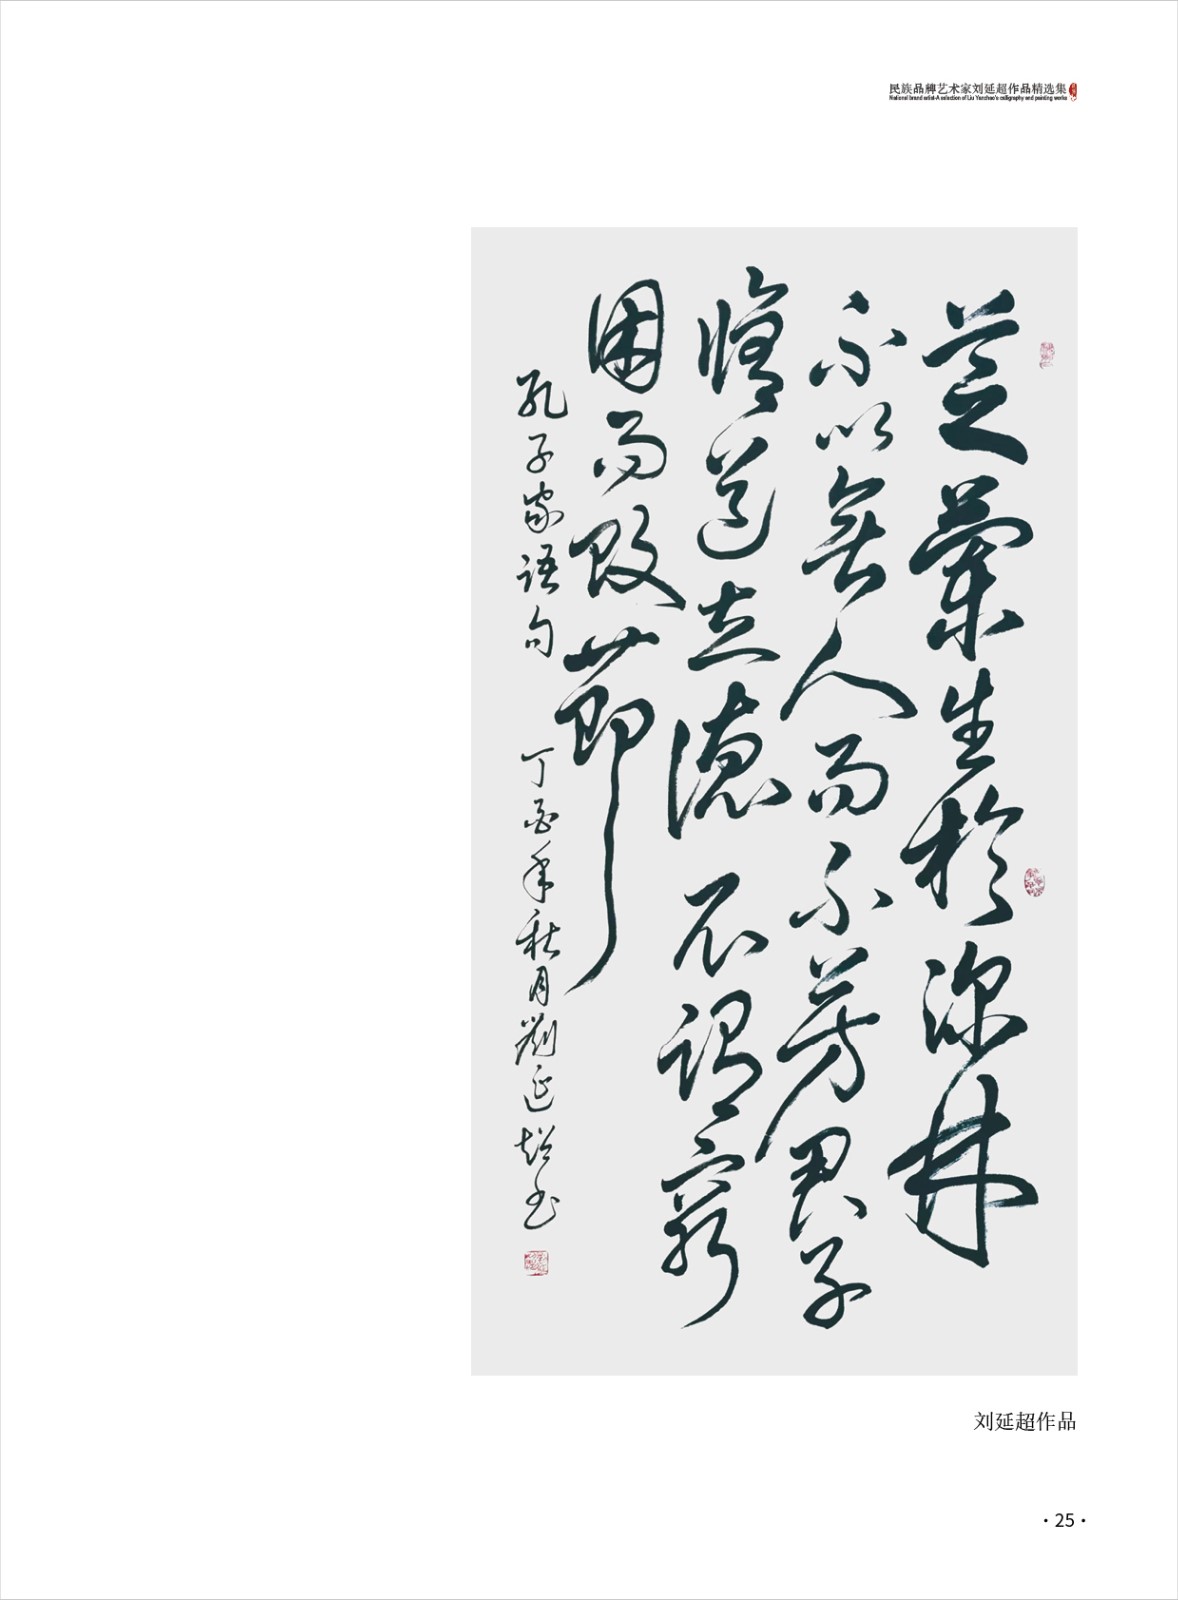 民族品牌艺术家刘延超作品精选集
National brand artist-A selection of Liu Yanchao's calligraphy and painting works
芝蘭生於深林
不以無人而不芳君子
脩道立德不謂窮
困而改節
孔子家語句
丁酉年秋月劉延超書
刘延超作品
·25·